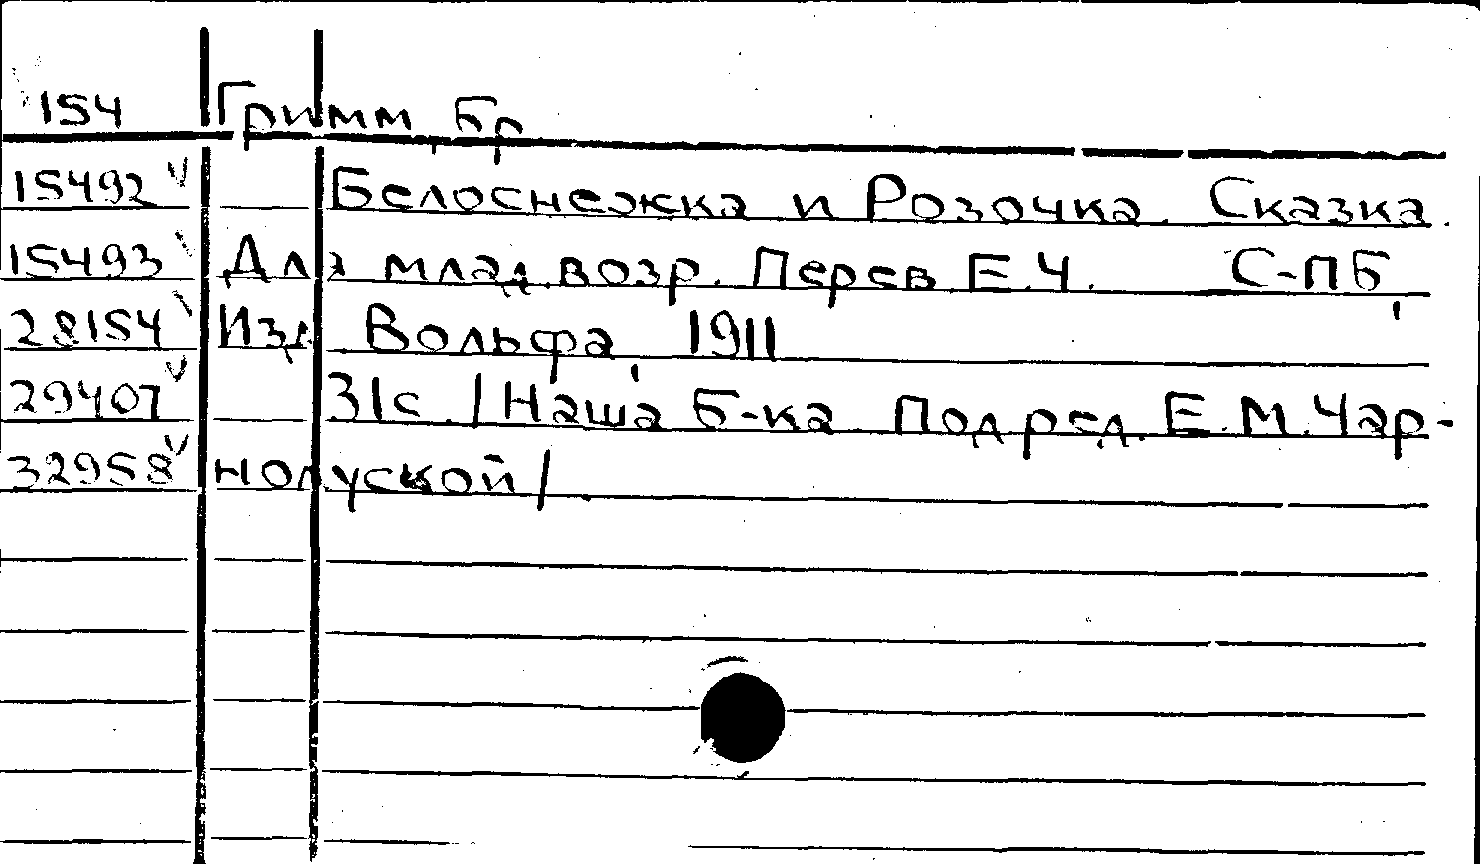 154 Гримм, Бр
15492 Белоснежка и Розочка. Сказка.
15493 Для млад. возр. Перев. Е.Ч. С-ПБ,
28154 Изд. Вольфа, 1911
29407 31с. /Наша б-ка. Под ред. Е.М.Чар-
32958 нолуской/.